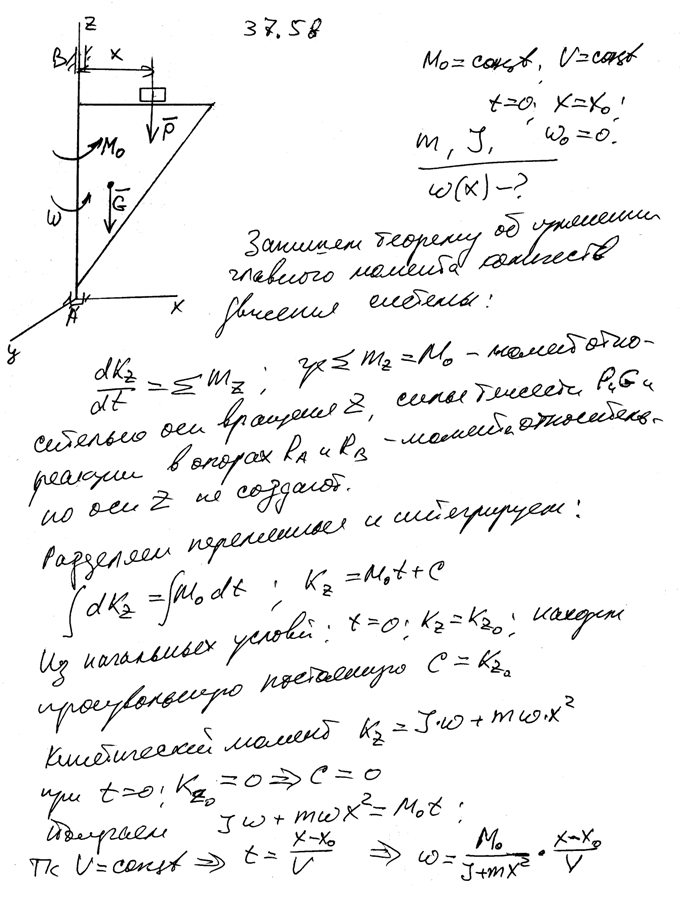 37.58
z
B
x
M₀=const, V=const
t=0; x=x₀;
ω₀=0.
m, J,
ω(x)-?
P̄
M₀
ω
Ḡ
A
x
y
Запишем теорему об изменении
главного момента количеств
движения системы:
dK_z/dt = Σ m_z; где Σ m_z = M₀ - момент отно-
сительно оси вращения Z, силы тяжести P и G и
реакции в опорах R_A и R_B - момента относитель-
но оси Z не создают.
Разделяем переменные и интегрируем:
∫dK_z = ∫M₀dt; K_z = M₀t + C
Из начальных условий: t=0; K_z=K_z₀; находим
произвольную постоянную C = K_z₀
Кинетический момент K_z = J·ω + mω·x²
при t=0; K_z₀ = 0 ⇒ C = 0
Получаем Jω + mωx² = M₀t;
тк V=const ⇒ t = (x-x₀)/V ⇒ ω = M₀/(J+mx²) · (x-x₀)/V